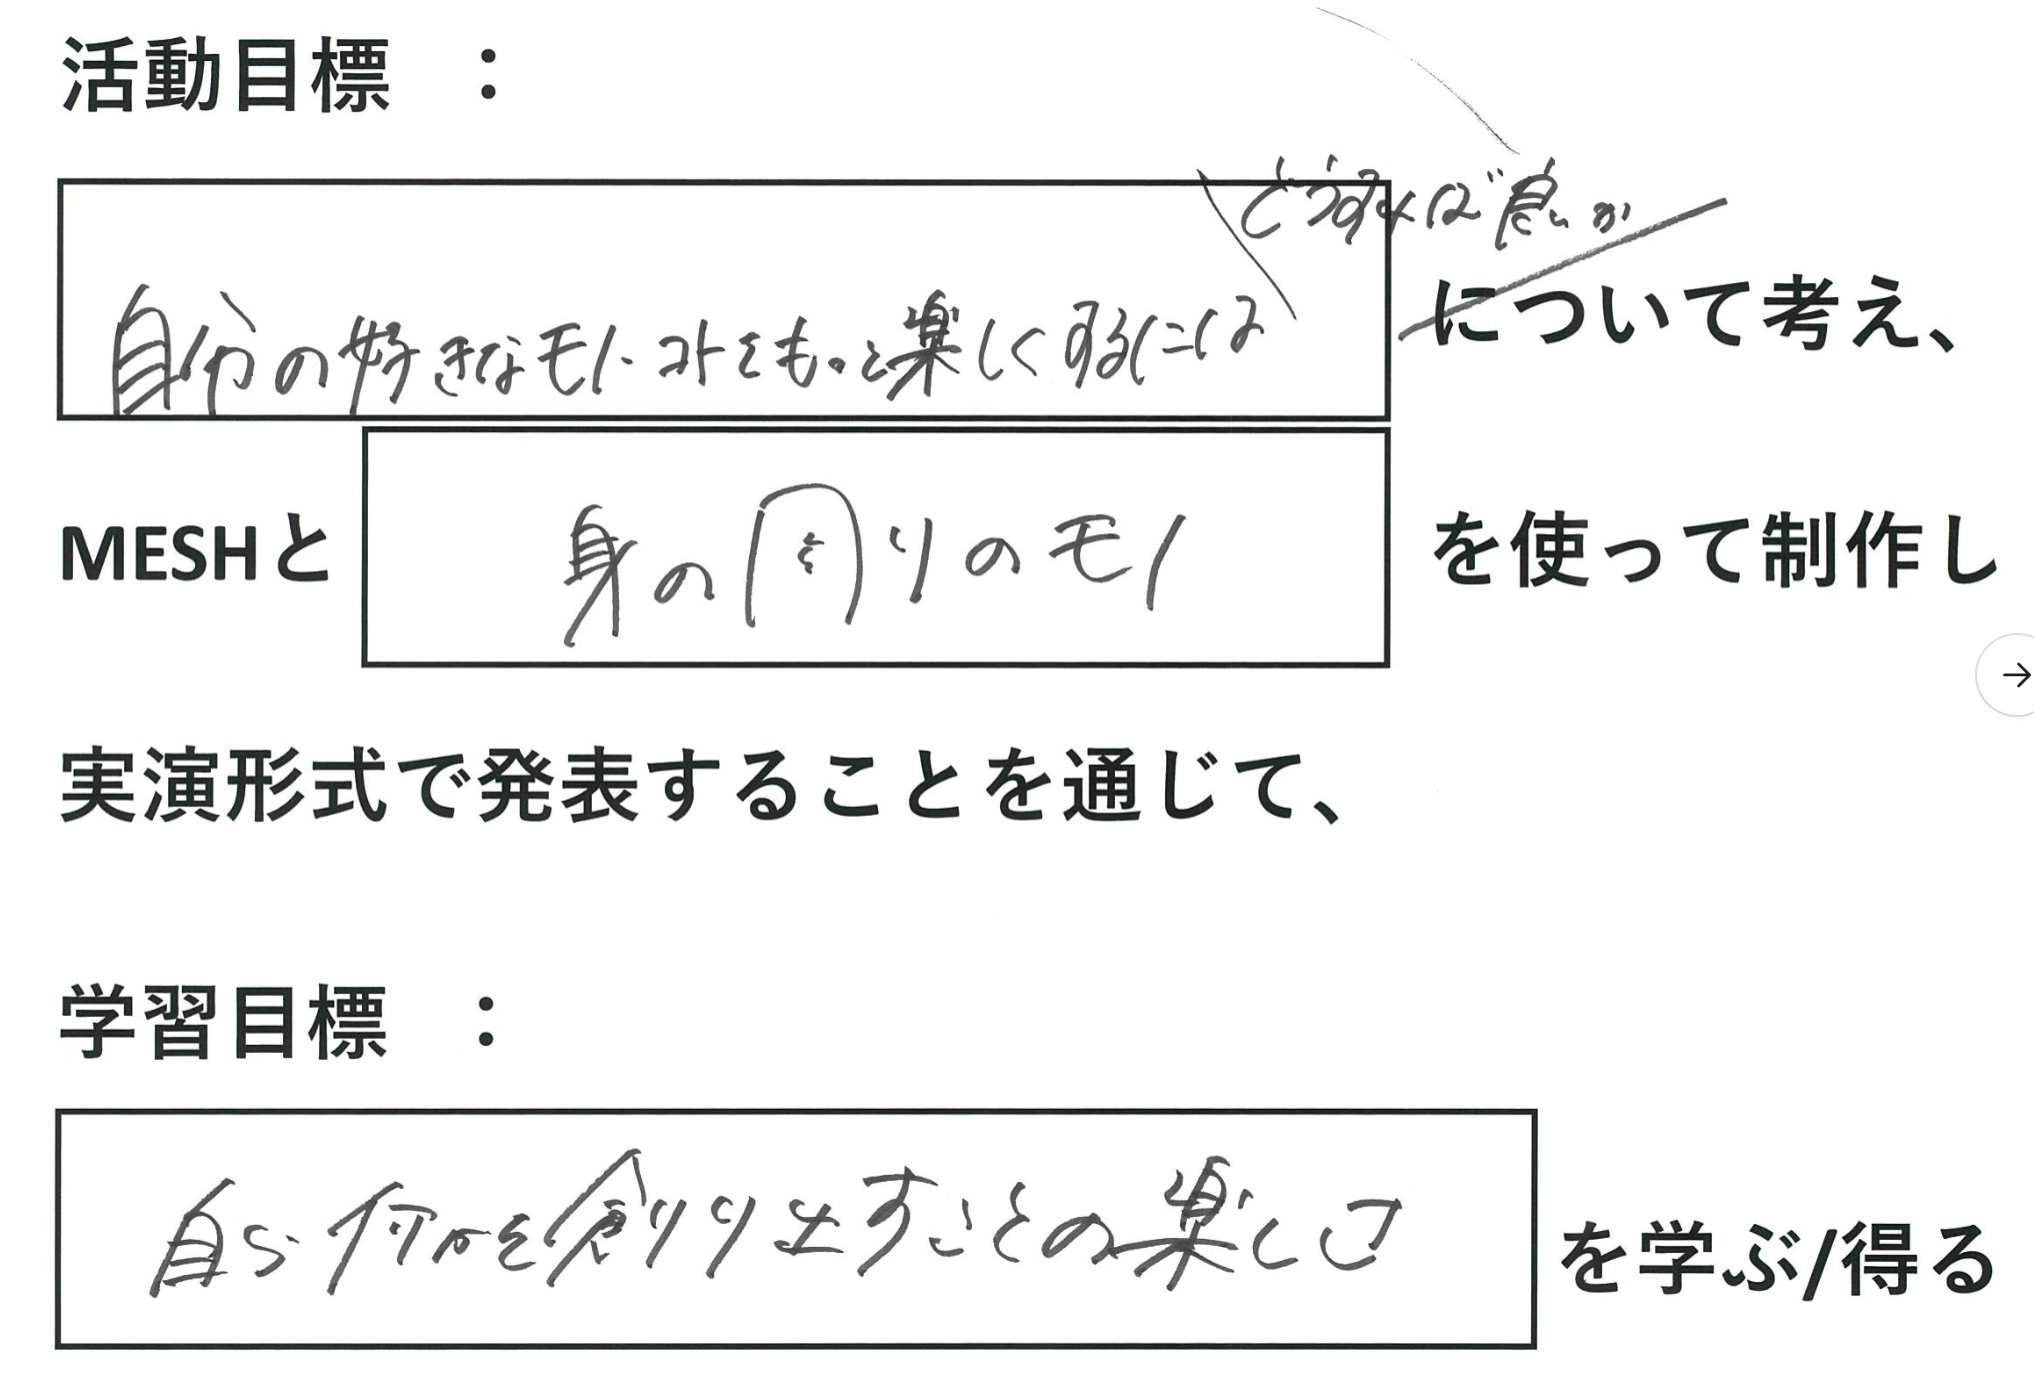 活動目標 ：
どうすれば良いか
自分の好きなモノ・コトをもっと楽しくするには について考え、
MESHと 身の周りのモノ を使って制作し
実演形式で発表することを通じて、
学習目標 ：
自ら何かを創り出すことの楽しさ を学ぶ/得る